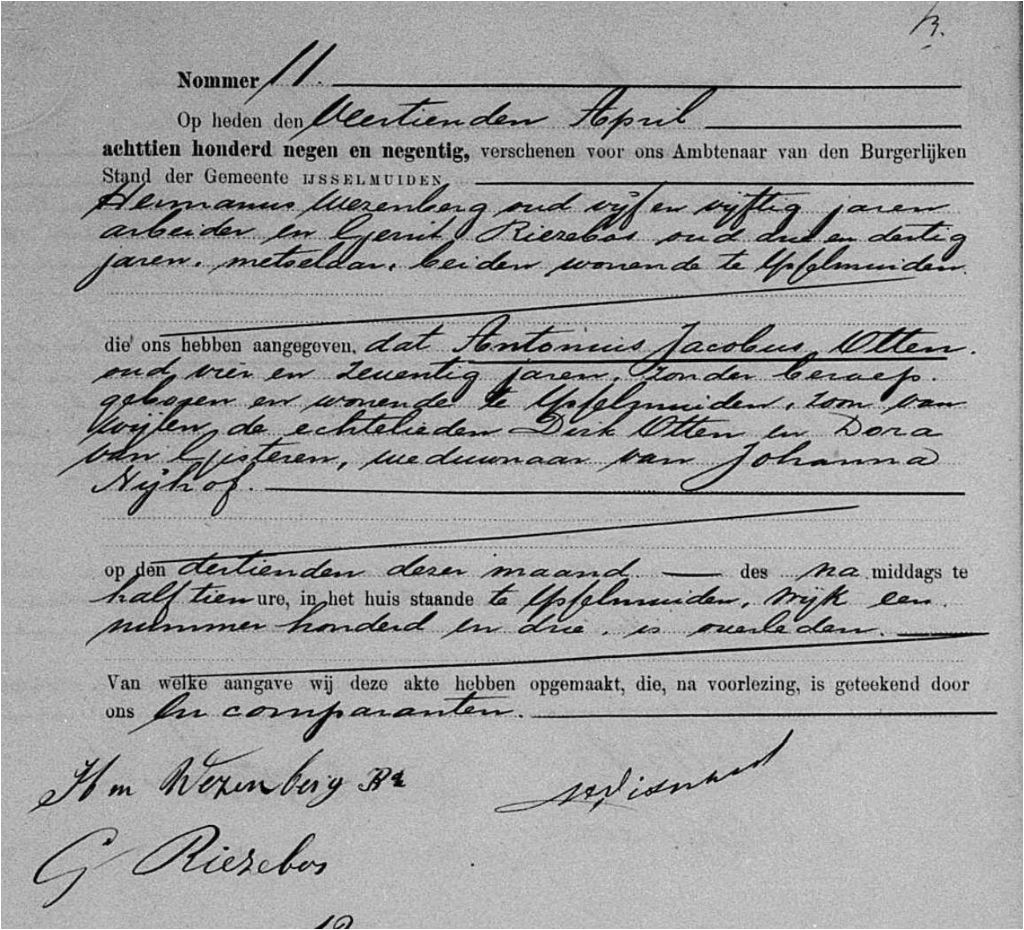 Nommer 11.
Op heden den Veertienden April
achttien honderd negen en negentig, verschenen voor ons Ambtenaar van den Burgerlijken
Stand der Gemeente IJSSELMUIDEN
Hermanus Wezenberg oud vijf en vijftig jaren
arbeider en Gerrit Riezebos oud drie en dertig
jaren, metselaar, beiden wonende te IJsselmuiden
die ons hebben aangegeven, dat Antonius Jacobus Otten.
oud vier en zeventig jaren, zonder beroep.
geboren en wonende te IJsselmuiden, zoon van
wijlen de echtelieden Dirk Otten en Dora
van Gijsteren, weduwnaar van Johanna
Nijhof.
op den dertienden dezer maand des na middags te
half tien ure, in het huis staande te IJsselmuiden, Wijk een
nummer honderd en drie, is overleden.
Van welke aangave wij deze akte hebben opgemaakt, die, na voorlezing, is geteekend door
ons en comparanten.
Hm Wezenberg
G Riezebos
12